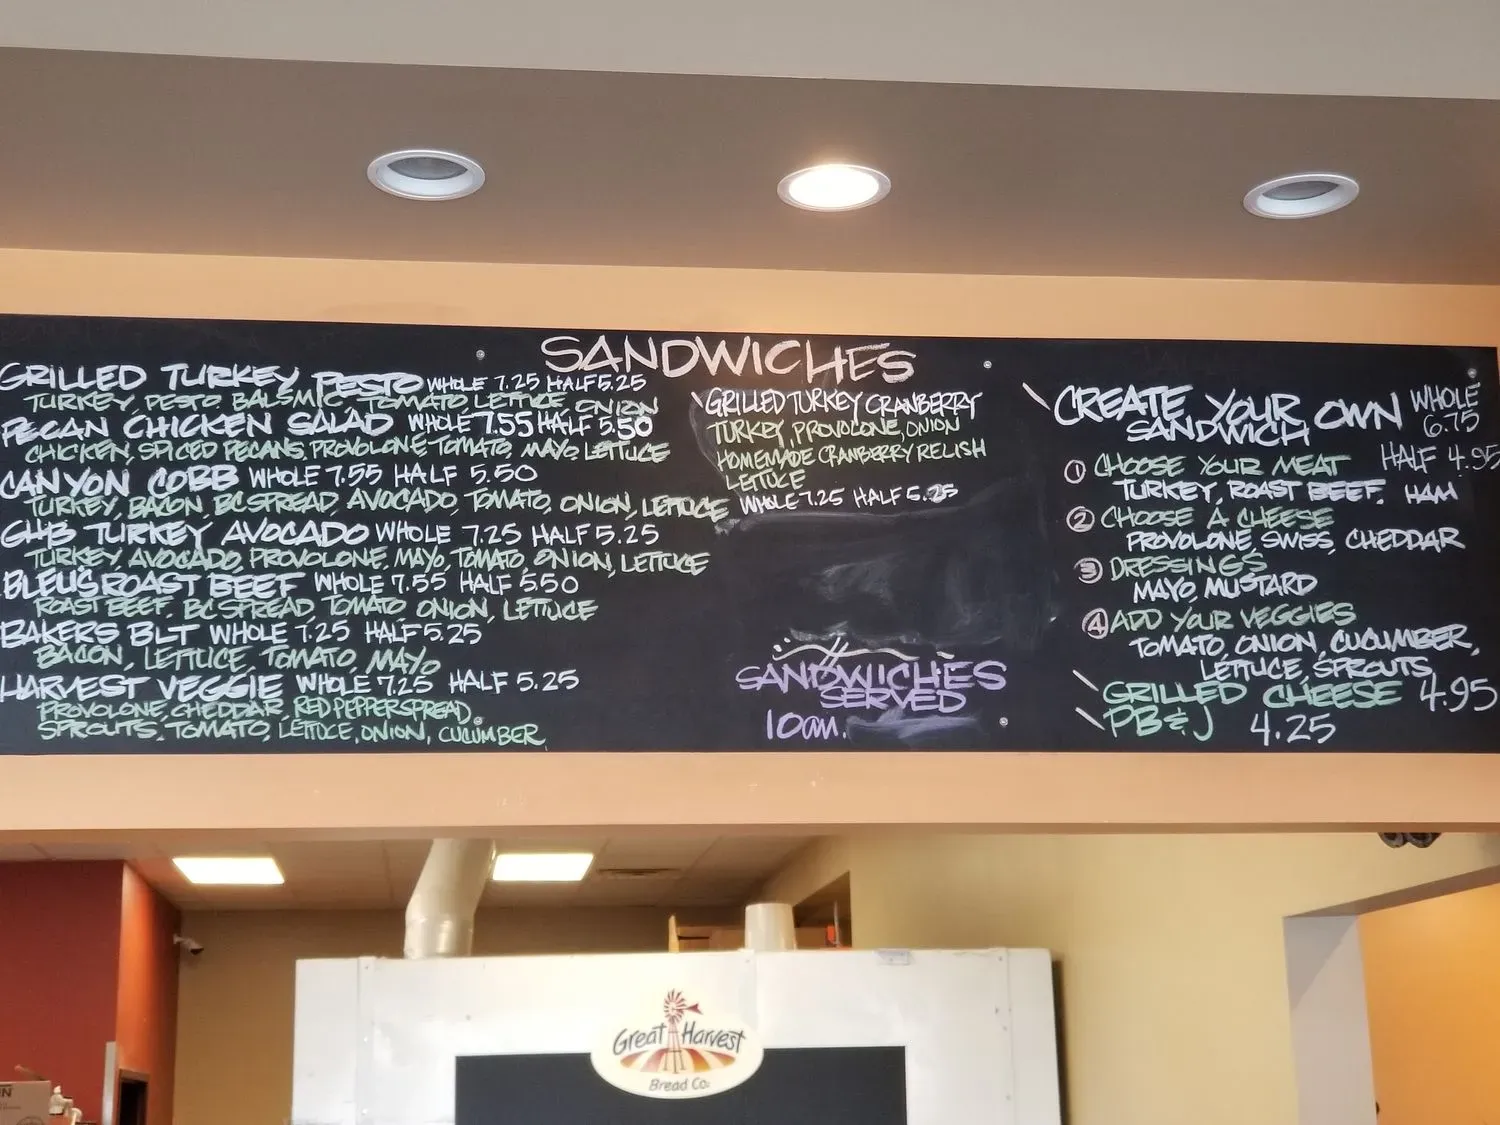 SANDWICHES
GRILLED TURKEY PESTO WHOLE 7.25 HALF 5.25
TURKEY, PESTO, BALSMIC, TOMATO, LETTUCE, ONION
PECAN CHICKEN SALAD WHOLE 7.55 HALF 5.50
CHICKEN, SPICED PECANS, PROVOLONE TOMATO, MAYO, LETTUCE
CANYON COBB WHOLE 7.55 HALF 5.50
TURKEY, BACON, BC SPREAD, AVOCADO, TOMATO, ONION, LETTUCE
GHB TURKEY AVOCADO WHOLE 7.25 HALF 5.25
TURKEY, AVOCADO, PROVOLONE, MAYO, TOMATO, ONION, LETTUCE
BLEU'S ROAST BEEF WHOLE 7.55 HALF 5.50
ROAST BEEF, BC SPREAD, TOMATO, ONION, LETTUCE
BAKERS BLT WHOLE 7.25 HALF 5.25
BACON, LETTUCE, TOMATO, MAYO
HARVEST VEGGIE WHOLE 7.25 HALF 5.25
PROVOLONE, CHEDDAR, RED PEPPER SPREAD,
SPROUTS, TOMATO, LETTUCE, ONION, CUCUMBER
GRILLED TURKEY CRANBERRY
TURKEY, PROVOLONE, ONION
HOMEMADE CRANBERRY RELISH
LETTUCE
WHOLE 7.25 HALF 5.25
SANDWICHES
SERVED
10am.
CREATE YOUR OWN WHOLE
SANDWICH 6.75
HALF 4.95
1 CHOOSE YOUR MEAT
TURKEY, ROAST BEEF, HAM
2 CHOOSE A CHEESE
PROVOLONE, SWISS, CHEDDAR
3 DRESSINGS
MAYO, MUSTARD
4 ADD YOUR VEGGIES
TOMATO, ONION, CUCUMBER,
LETTUCE, SPROUTS
GRILLED CHEESE 4.95
PB & J 4.25
Great Harvest
Bread Co.